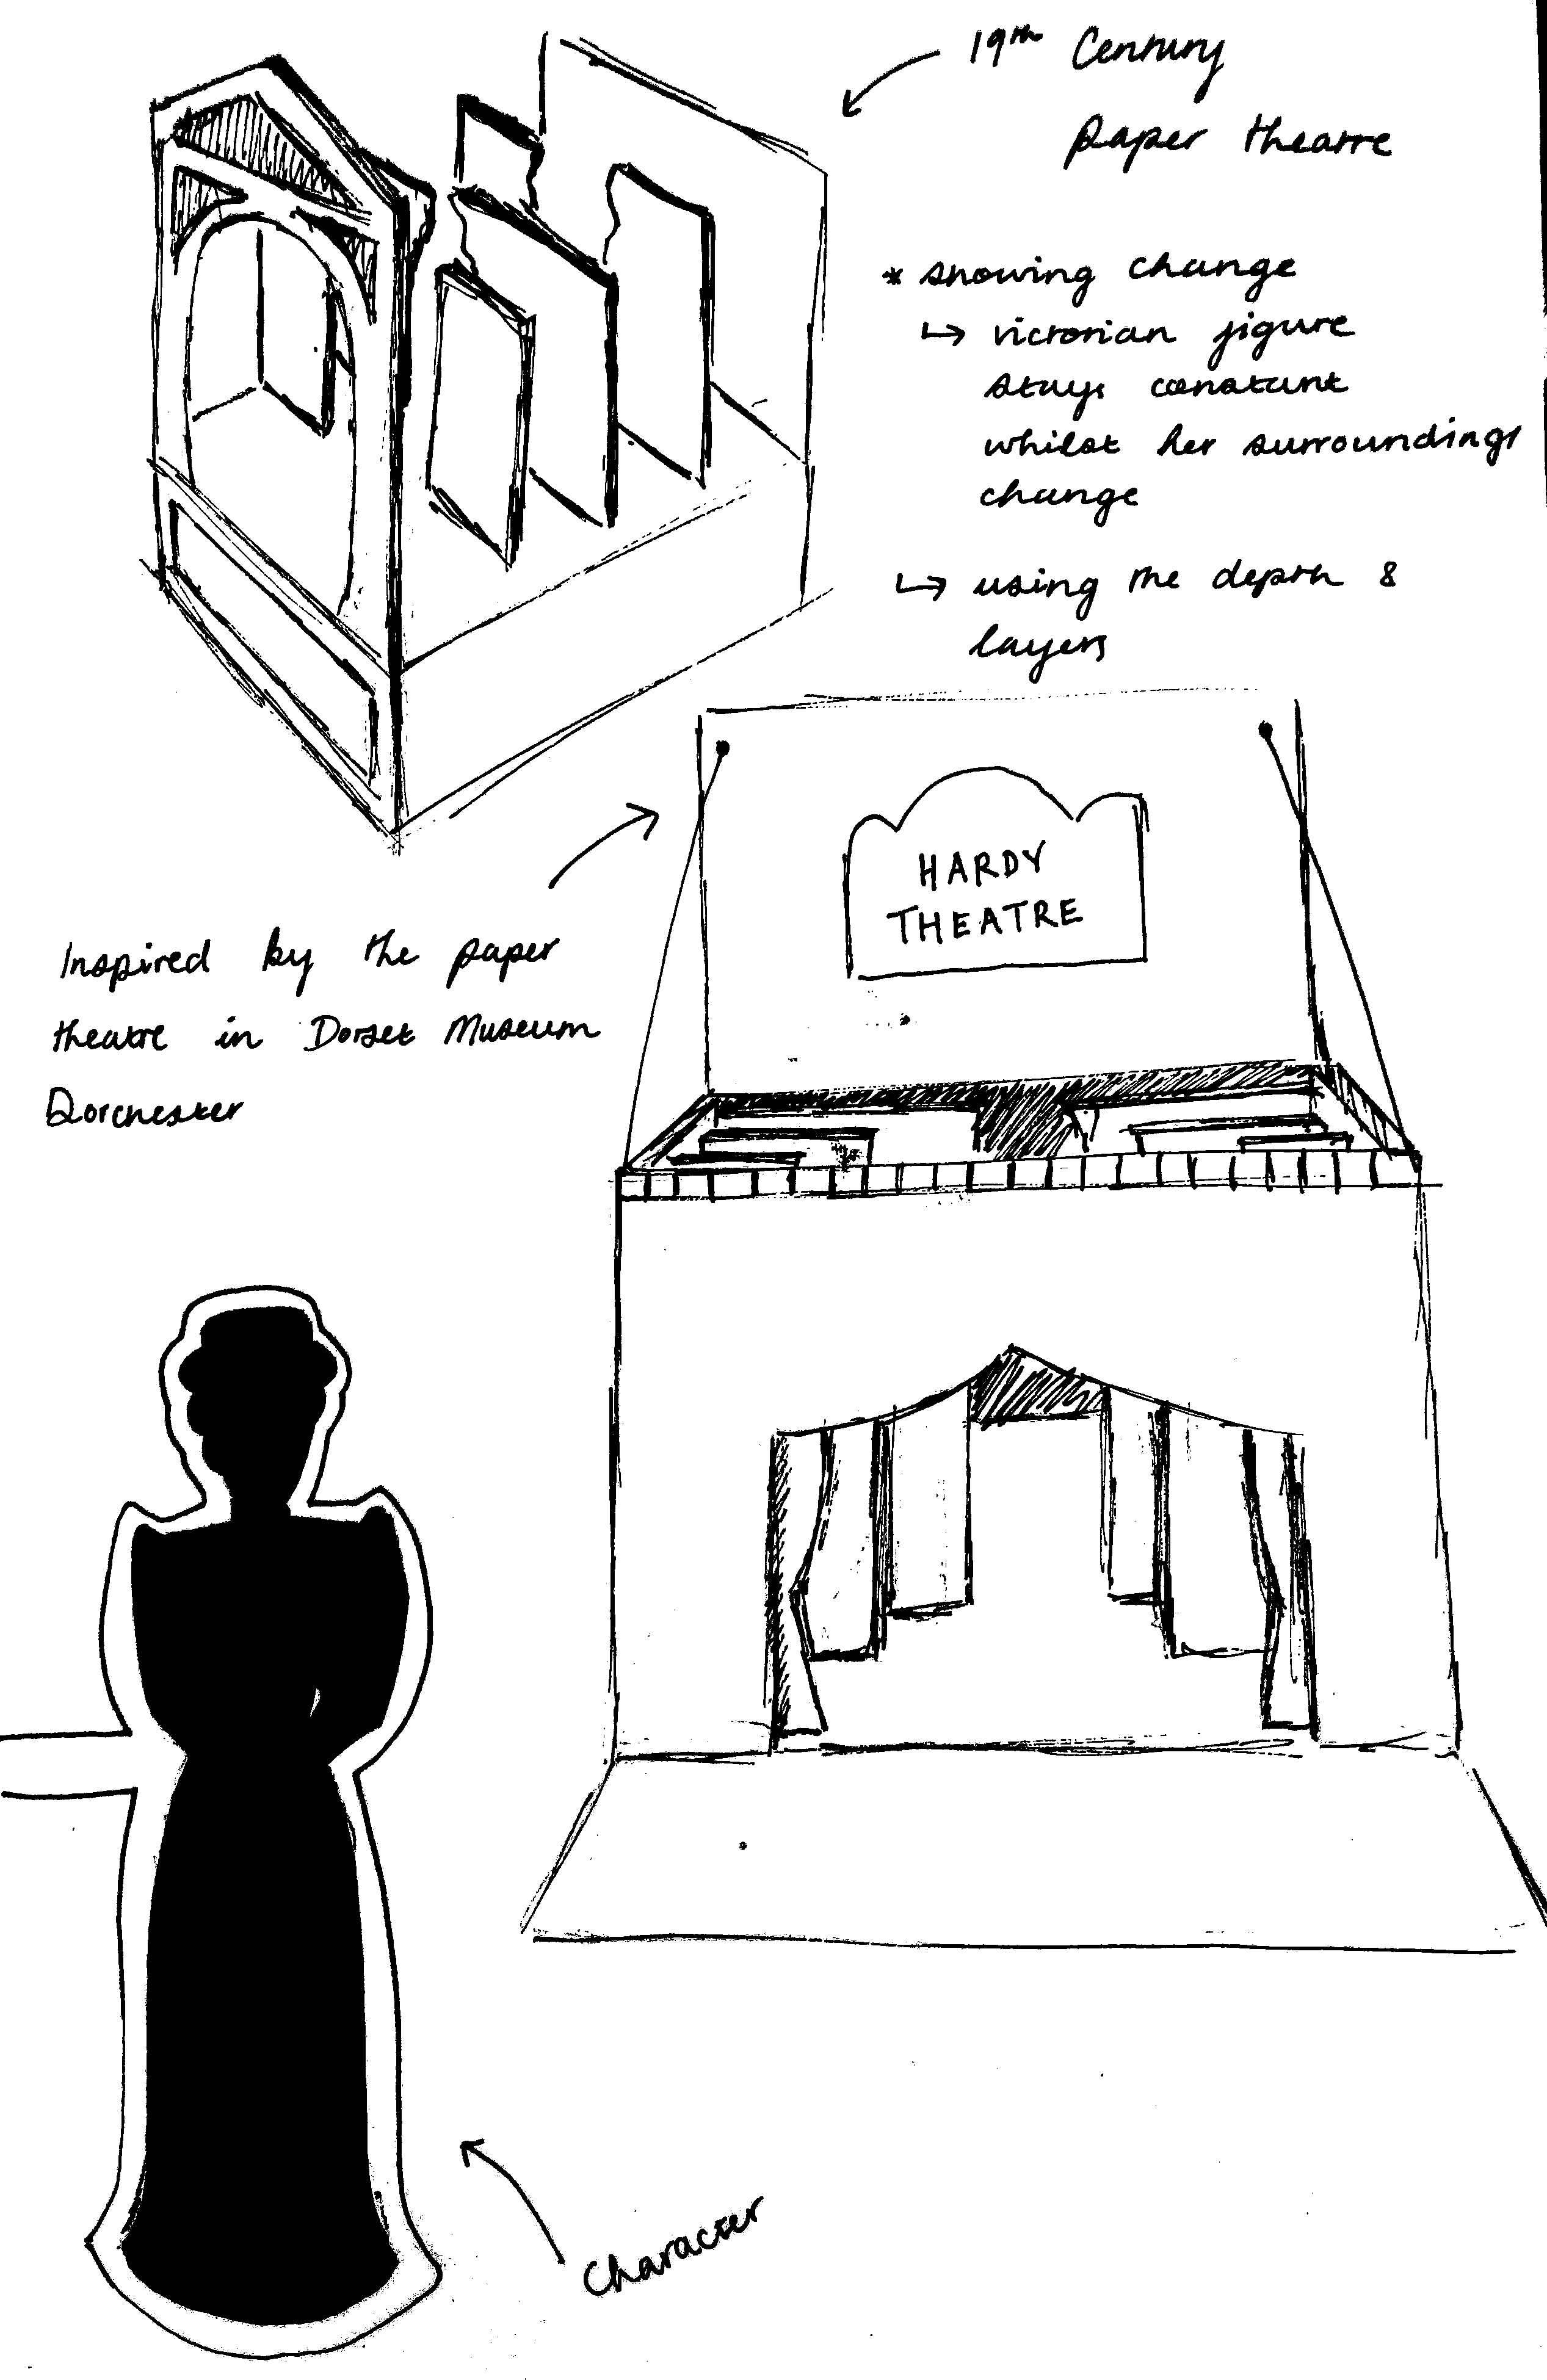 19th Century
paper theatre
* showing change
↳ victorian figure
stays constant
whilst her surroundings
change
↳ using the depth &
layers
HARDY
THEATRE
Inspired by the paper
theatre in Dorset Museum
Dorchester
Character